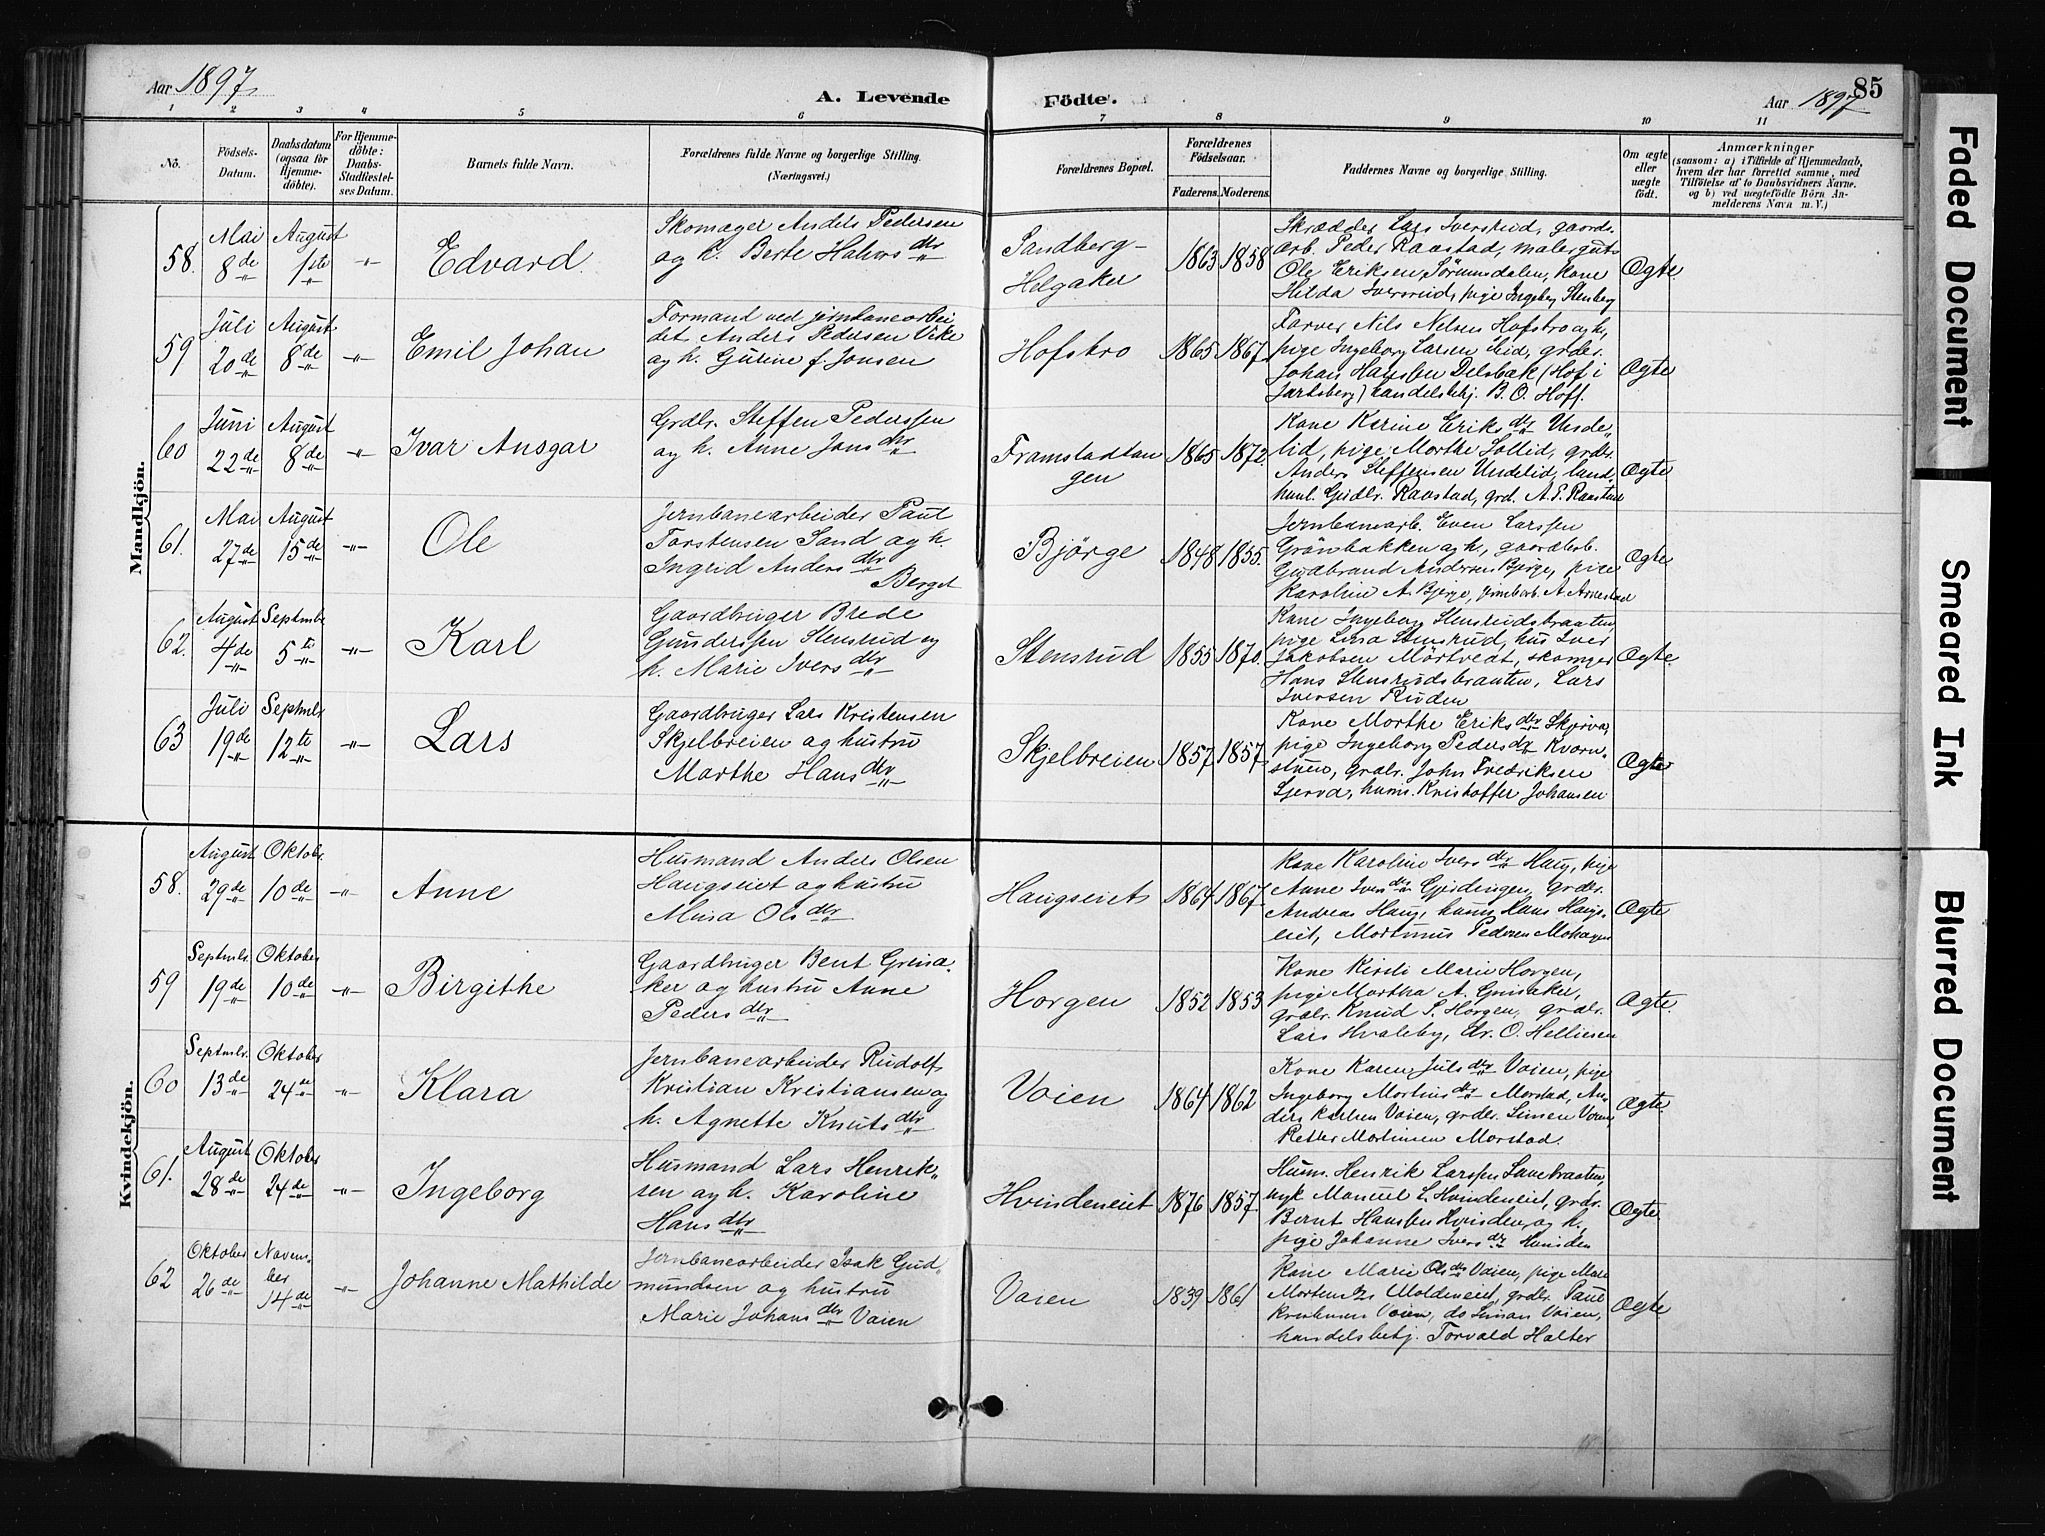 Aar 1897.
A. Levende Födte.
Aar 1897
85
1 2 3 4 5 6 7 8 9 10 11
No.
Födsels-
Datum.
Daabsdatum
(ogsaa för
Hjemme-
döbte).
For Hjemme-
döbte:
Daabs-
Stadfæstel-
ses Datum.
Barnets fulde Navn.
Forældrenes fulde Navne og borgerlige Stilling.
(Næringsvei.)
Forældrenes Bopæl.
Forældrenes
Födselsaar.
Faderens. Moderens.
Faddernes Navne og borgerlige Stilling.
Om ægte
eller
uægte
födt.
Anmærkninger
(saasom: a) i Tilfælde af Hjemmedaab,
hvem der har forrettet samme, med
Tilföielse af to Daabsvidners Navne.
og b) ved uægtefödte Börn An-
melderens Navn m. V.)
Mandkjön.
58. Mai 8de August 1ste -"- Edvard.
Skomager Anders Pedersen
og h. Berte Halvorsdtr
Sandberg-
Helgaker
1863 1858
Skrædder Lars Iversrud, gaards-
arb. Peder Raastad, malergut
Ole Eriksen Sörumsdalen, kone
Hilda Iversrud, pige Ingeborg Stenberg
Ægte
59 Juli 20de August 8de -"- Emil Johan
Formand ved jernbanearbei
det Anders Pedersen Vike
og h. Gurine f. Jonsen
Hofstro
1865 1867.
Farver Nils Nelsen Hofstro og h,
pige Ingeborg Larsen Lid, grdbr.
Johan Hansen Delsbæk (Hof i
Jarlsberg) handelsbetj. B. O. Hoff.
Ægte
60 Juni 22de August 8de -"- Ivar Ansgar
Grdbr. Steffen Pederssen
og h. Anne Jonsdtr
Framstadtan
gen
1865 1872.
Kone Karine Eriksdtr Unde-
lid, pige Marthe Sollid, grdbr.
Anders Steffensen Undelid, land-
Gudbr. Raastad, grd. A. P. Raastad
Ægte
61. Mai 27de August 15de -"- Ole
Jernbanearbeider Paul
Torstensen Sand og h.
Ingrid Andersdtr
Berget
Bjørge
1848 1855.
Jernbanearb. Even Larssen
Grönbakken og h., gaardarb.
Gudbrand Andersen Bjørge, pige
Karoline A. Bjørge, jernbarb. A. Arnestad
Ægte
62. August 4de Septmbr 5te -"- Karl
Gaardbruger Brede
Gunderssen Stensrud og
h. Marie Iversdtr
Stensrud
1855 1870.
Kone Ingeborg Stensrudsbraaten,
pige Lina Stensrud, hus Iver
Jakobsen Mörtvedt, skomager
Hans Stensrudsbraaten, Lars
Iversen Ruden
Ægte
63 Juli 19de Septmbr 12te -"- Lars
Gaardbruger Lars Kristensen
Skjelbreien og hustru
Marthe Hansdtr
Skjelbreien
1857 1857.
Kone Marthe Eriksdtr Skjerva,
pige Ingeborg Pedersdtr Kvern-
stuen, grdbr. John Fredriksen
Sjervd, husm. Kristoffer Johansen
Ægte
Kvindekjön.
58. August 29de Oktober 10de -"- Anne
Husmand Anders Olsen
Haugseiet og hustru
Musa Olsdtr
Haugseiets
1864 1867.
Kone Karoline Iversdtr Haug, pige
Anne Iversdtr Gjerdingen, grdbr.
Andreas Haug, husm. Hans Haugs-
eiet, Martinus Pedersen Mohagen
Ægte
59 Septmbr. 19de Oktober 10de -"- Birgithe
Gaardbruger Bent Grina-
ker og hustru Anne
Pedersdtr
Horgen
1852 1853
Kone Kirsti Marie Horgen,
pige Martha A. Grinaker,
grdbr. Knud P. Horgen, grdbr.
Lars Hvaleby, Elr. O. Helliesen
Ægte.
60 Septmbr. 13de Oktober 24de -"- Klara
Jernbanearbeider Rudolf
Kristian Kristiansen og
h. Agnette Knutsdtr
Voien
1864 1862
Kone Karen Julsdtr Voien, pige
Ingeborg Martinsdtr Morstad, An-
ders Karlsen Voien, grdbr. Simen Voien
Petter Mortinsen Morstad.
Ægte
61. August 28de Oktober 24de -"- Ingeborg
Husmand Lars Henrik-
sen og h. Karoline
Hansdtr
Hvindeneiet
1876 1857.
Husm. Henrik Larssen Lunebraaten,
ugk Manuel L. Hvindeneiet, grdbr.
Bernt Hanssen Hvinden og h.,
pige Johanne Iversdtr Hvinden
Ægte.
62 Oktober 26de Novem-
ber 14de -"- Johanne Mathilde
Jernbanearbeider Isak Gud-
mundsen og hustru
Marie Johansdtr Voien
Voien
1839 1861
Kone Marie Olsdtr Voien, pige Mari
Mortensdtr Moldeneiet, grdbr. Paul
Kristiansen Voien, do Simon Voien,
handelsbetj. Torvald Halter
Ægte
Faded Document
Smeared Ink
Blurred Document